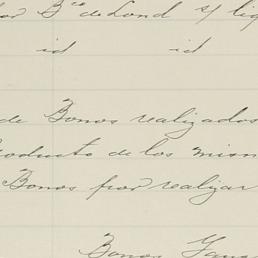 por B.co de Lond s/ liq
id id
de Bonos realizados
producto de los mism
Bonos por realizar
Bonos